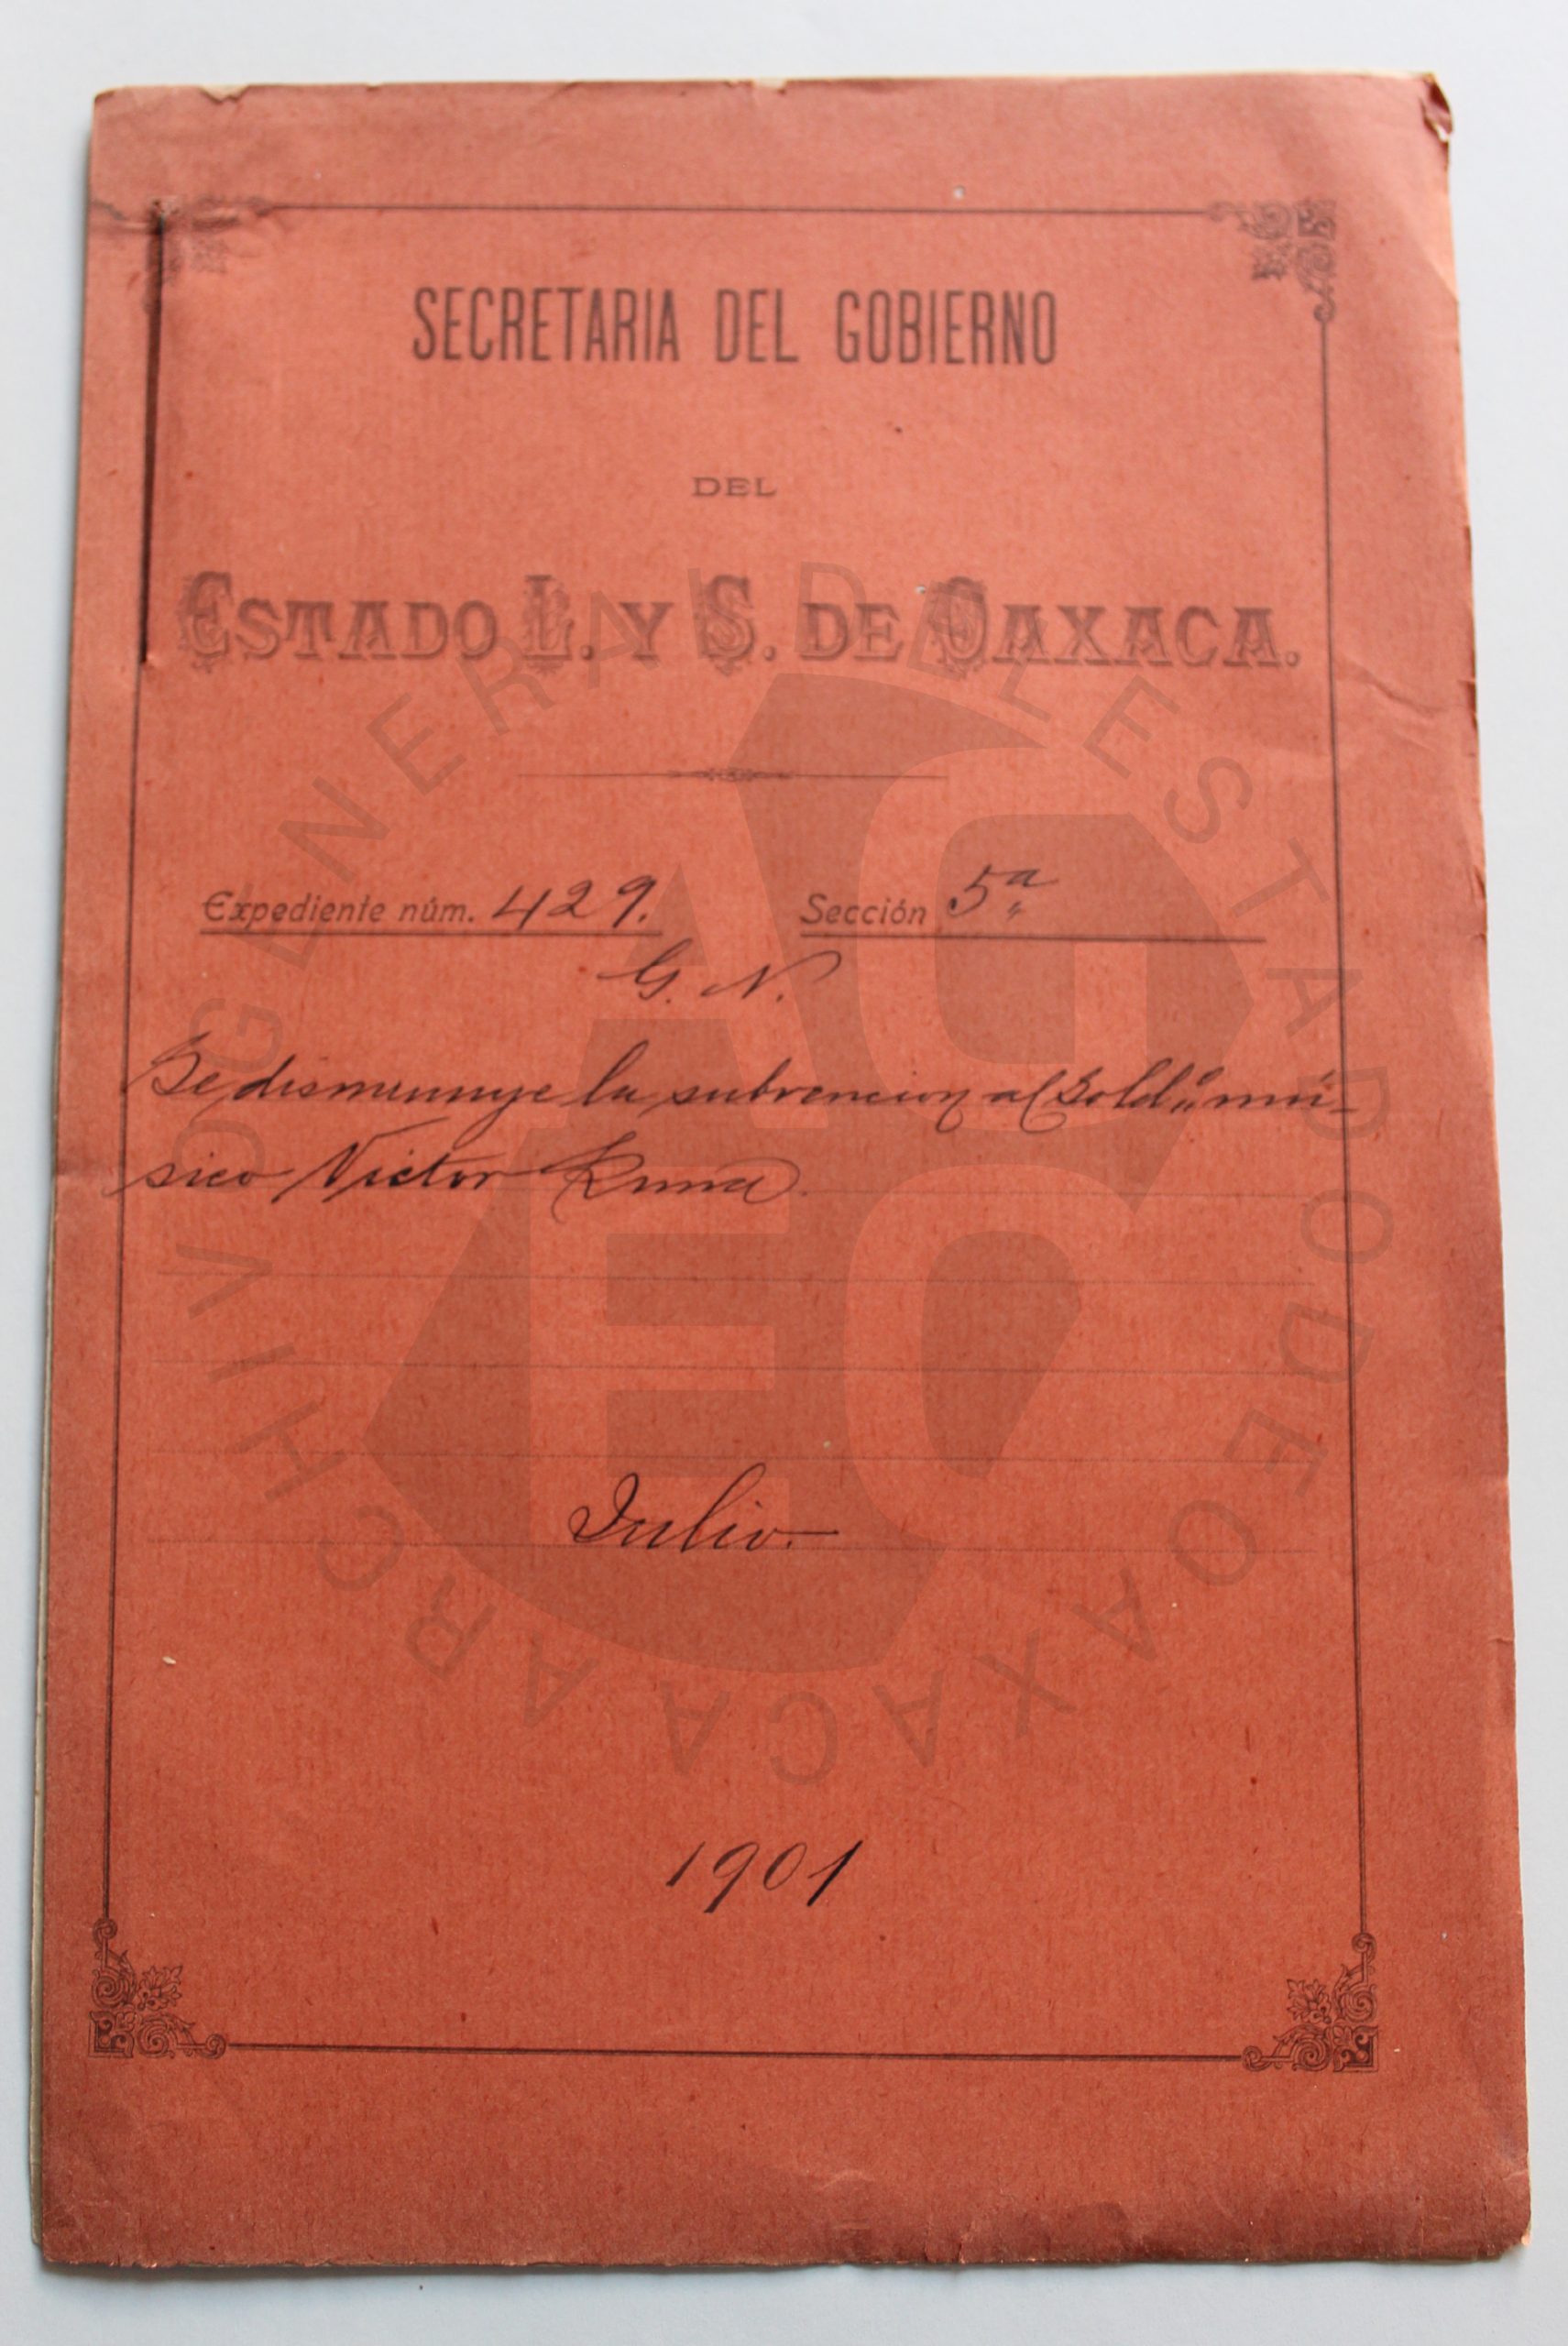 SECRETARIA DEL GOBIERNO
DEL
ESTADO L. Y S. DE OAXACA.
Expediente núm. 429. Sección 5ª
G. N.
Se disminuye la subvencion al Sold.º mú-
sico Victor
Julio.
1901
ARCHIVO GENERAL DEL ESTADO DE OAXACA
AGEO